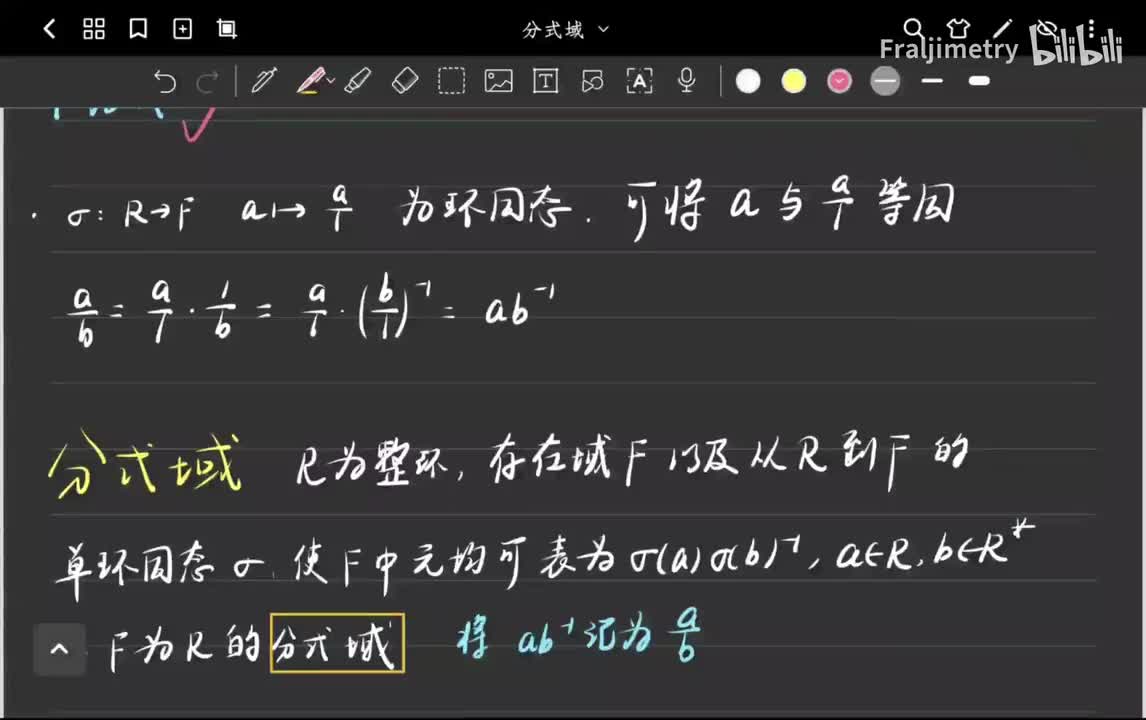 分式域
Fraljimetry bilibili
· σ: R→F a↦ a/1 为环同态. 可将 a 与 a/1 等同
a/b = a/1 · 1/b = a/1 · (b/1)⁻¹ = ab⁻¹
分式域 R为整环, 存在域 F 以及从 R 到 F 的
单环同态 σ, 使 F 中元均可表为 σ(a)σ(b)⁻¹, a∈R, b∈R*
F 为 R 的 分式域 将 ab⁻¹ 记为 a/b